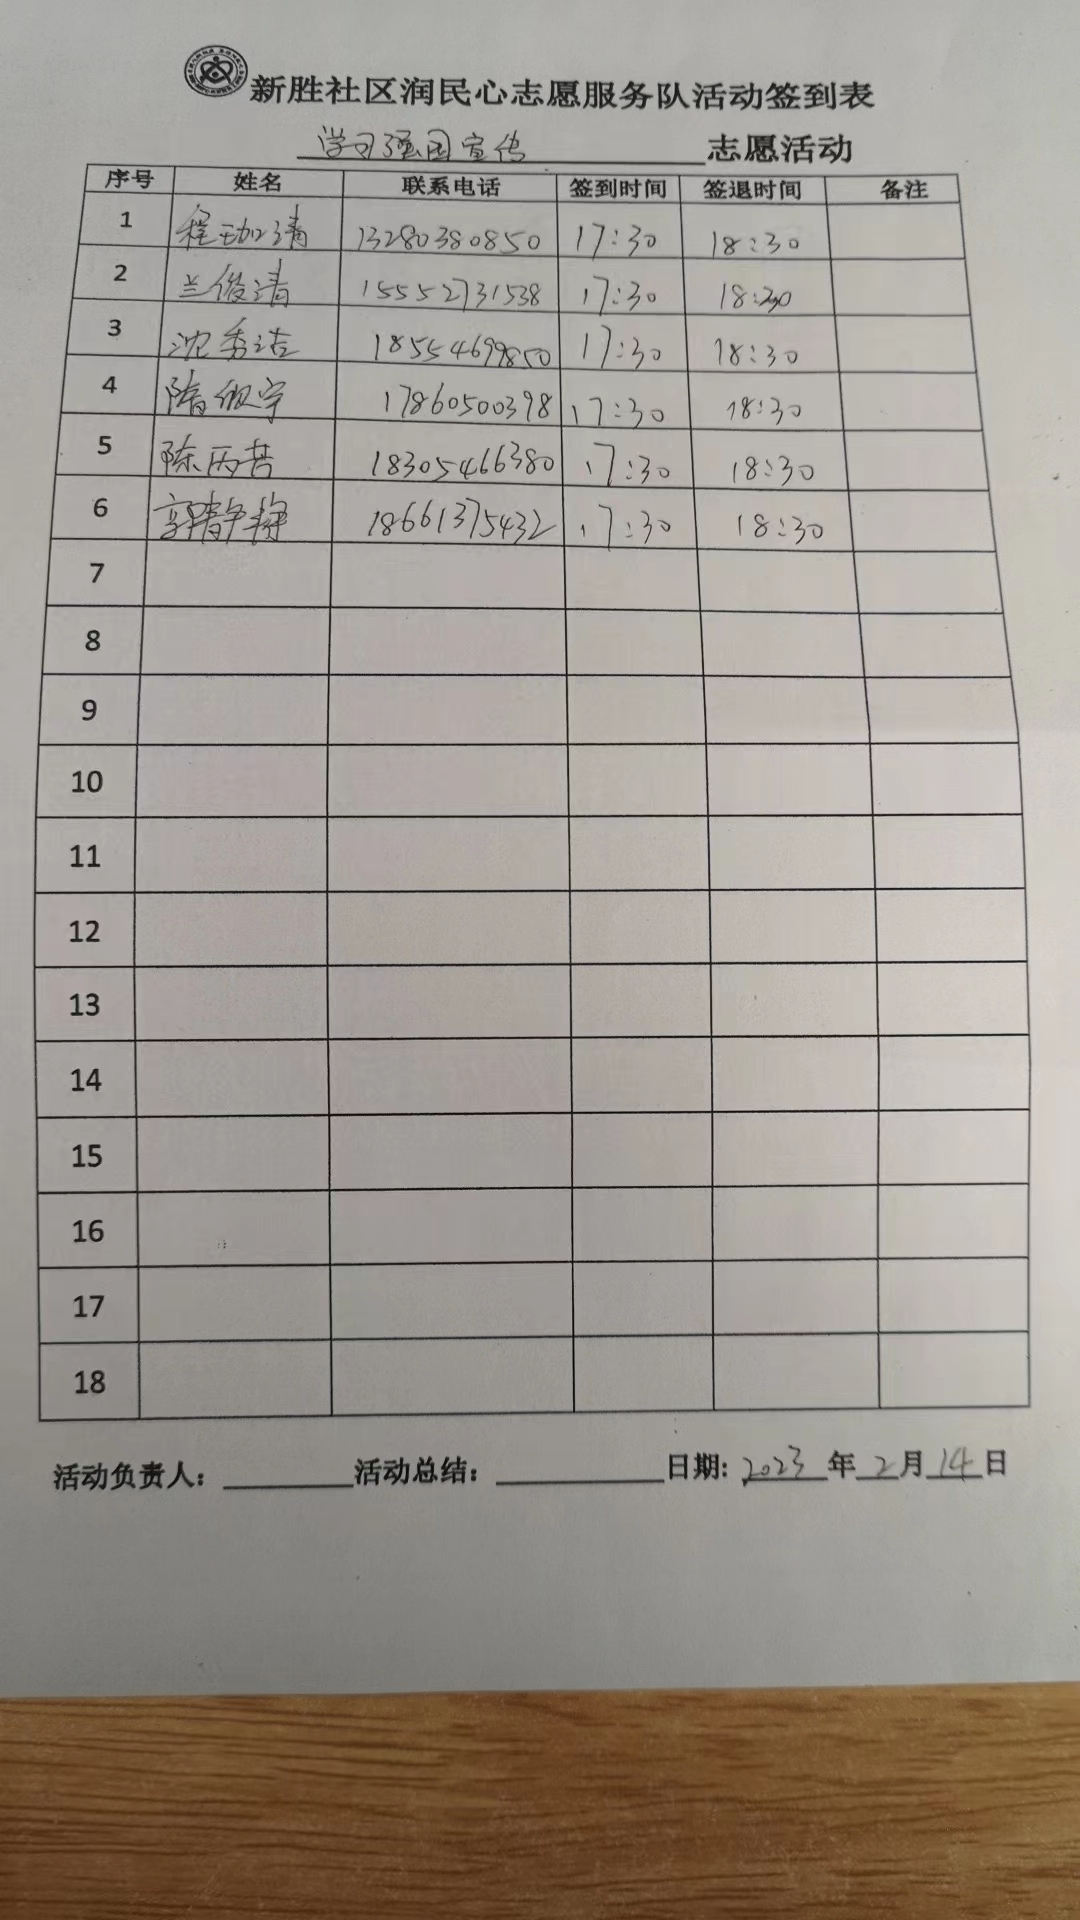 新胜社区润民心志愿服务队活动签到表
学习强国宣传 志愿活动
序号 姓名 联系电话 签到时间 签退时间 备注
1 程 清 13280380850 17:30 18:30
2 兰俊清 15552731538 17:30 18:30
3 沈秀洁 18554699850 17:30 18:30
4 隋 宇 17860500398 17:30 18:30
5 陈丙哲 18305466380 17:30 18:30
6 郭 18661375432 17:30 18:30
7
8
9
10
11
12
13
14
15
16
17
18
活动负责人: 活动总结: 日期: 2023 年 2 月 14 日